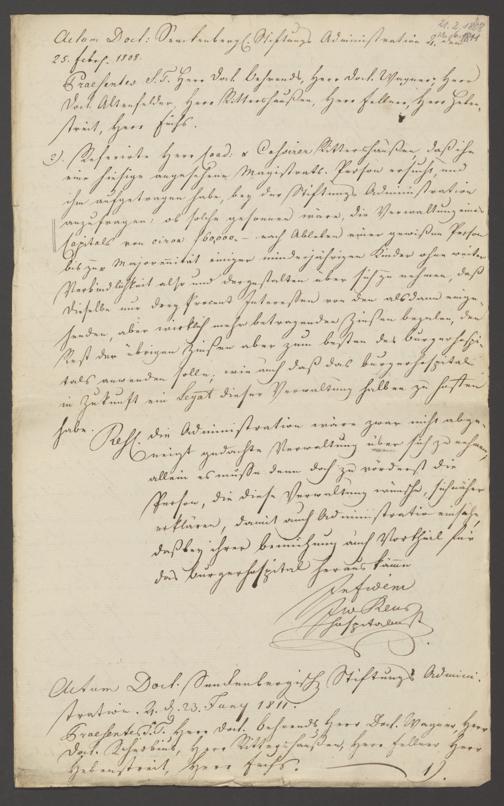 Actum Doct: Senckenbergl. Stiftungs Administration d. den
25. Febr. 1808.
Praesentes S.T. Herr Doct. Behrends, Herr Doct. Wagner, Herr
Doct. Altenfelder, Herr Rittershaußen, Herr Fellner, Herr Heben-
streit, Herr Fuchs.
2). Referirte Herr Cassirer Rittershaußen, daß ihn
eine hiesige angesehene Magistrats-Person ersucht, und
ihm aufgetragen habe, bey der Stiftungs Administration
anzufragen: ob solche gesonnen wäre, die Verwaltung eines
Capitals von circa f60,000.– nach Ableben einer gewißen Person
bis zur Majorennität einiger minderjährigen Kinder ohne weitere
Verbindlichkeit also und dergestalten über sich zu nehmen, daß
dieselbe nur drey Procent Interessen von den alsdann einge-
henden, aber wirklich mehr betragenden Zinßen bezalen, den
Rest der übrigen Zinßen aber zum besten des Burgerhospi-
tals anwenden solle; wie auch daß das Burgerhospital
in Zukunft ein Legat dieser Verwaltung halben zu hoffen
habe.
Resl. die Administration wäre zwar nicht abge-
neigt gedachte Verwaltung über sich zu nehmen,
allein es müße denn doch zu vörderst die
Person, die diese Verwaltung wünsche, sich näher
erklären, damit auch Administratio einsehe,
daß bey ihrer Bemühung auch Vortheil für
das Burgerhospital heraus käme
In fidem
Reus
Hospitalmstr.
Actum Doct. Senckenbergische Stiftungs Admini-
stration. d. 23. Jany 1811.
Praesentes S.T. Herr Doct. Behrends Herr Doct. Wagner, Herr
Doct. Kherbius, Herr Rittershaußen, Herr Fellner Herr
Hebenstreit, Herr Fuchs.
1).